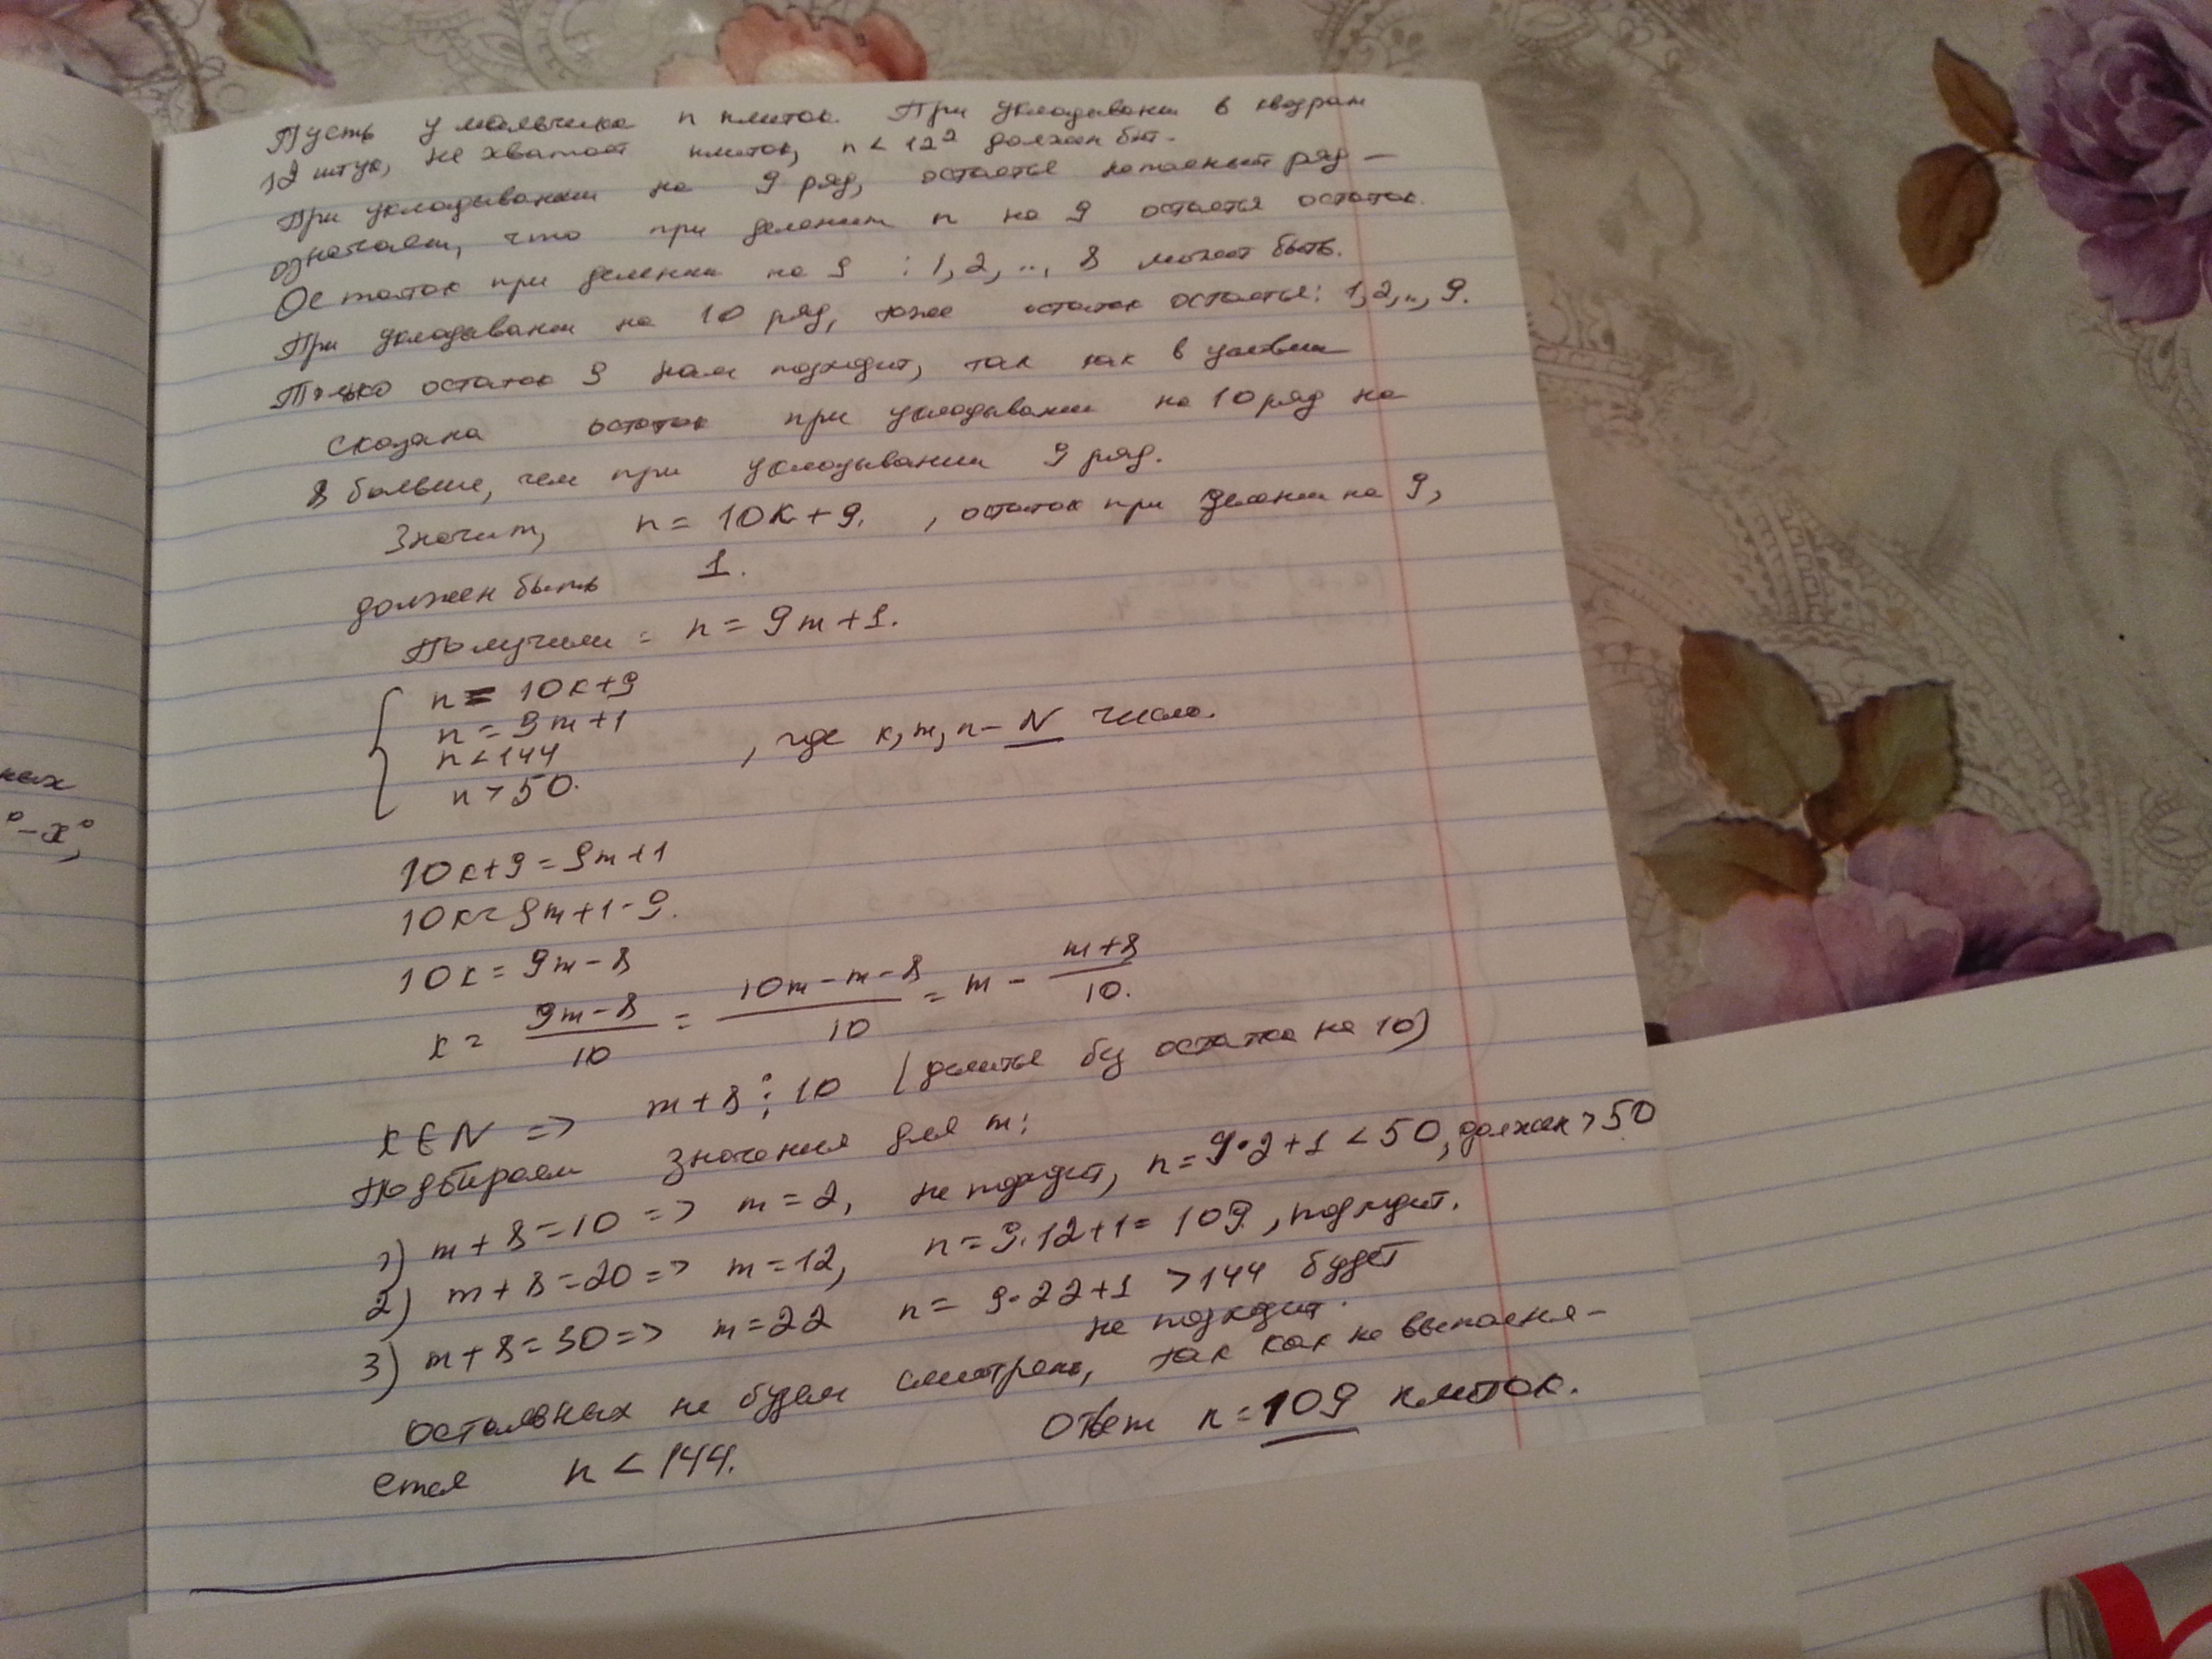 Пусть у мальчика n плиток. При укладывании в квадрат
12 штук, не хватает плиток, n < 12² должен быт.
При укладывании на 9 ряд, остаётся неполный ряд —
означает, что при делении n на 9 остаётся остаток.
Остаток при делении на 9 : 1, 2, .., 8 может быть.
При укладывании на 10 ряд, тоже остаток остаётся: 1, 2, .., 9.
Только остаток 9 нам подходит, так как в условии
сказана остаток при укладывании на 10 ряд на
8 больше, чем при укладывании 9 ряд.
Значит, n = 10к + 9. , остаток при делении на 9,
должен быть 1.
Получили = n = 9m + 1.
n = 10к+9
n = 9m+1
n < 144 , где к, m, n – N число.
n > 50.
10к+9 = 9m+1
10к = 9m+1-9.
10к = 9m-8
к = 9m-8/10 = 10m-m-8/10 = m - m+8/10.
к ∈ N => m+8 ⋮ 10 (делится без остатка на 10)
Подбираем значения для m:
1) m+8=10 => m=2, не подходит, n=9·2+1 < 50, должен > 50
2) m+8=20 => m=12, n=9·12+1= 109, подходит.
3) m+8=30 => m=22 n= 9·22+1 > 144 будет
не подходит.
остальных не будем смотреть, так как не выполня-
ется n < 144. Ответ n = 109 плиток.
ных
°-x°,